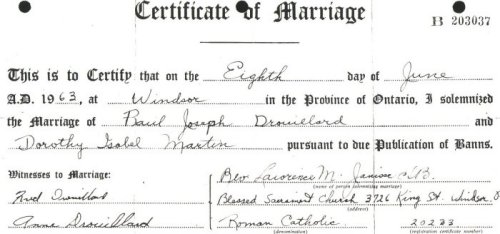 Certificate of Marriage
B 203037
This is to Certify that on the Eighth day of June
A.D. 1963, at Windsor in the Province of Ontario, I solemnized
the Marriage of Paul Joseph Drouillard and
Dorothy Isabel Martin pursuant to due Publication of Banns.
Witnesses to Marriage:
Rev Lawrence M. CSB
(name of person solemnizing marriage)
Blessed Sacrament Church 3726 King St. Windsor, O
(address)
Anne Drouillard
Roman Catholic 20233
(denomination) (registration certificate number)